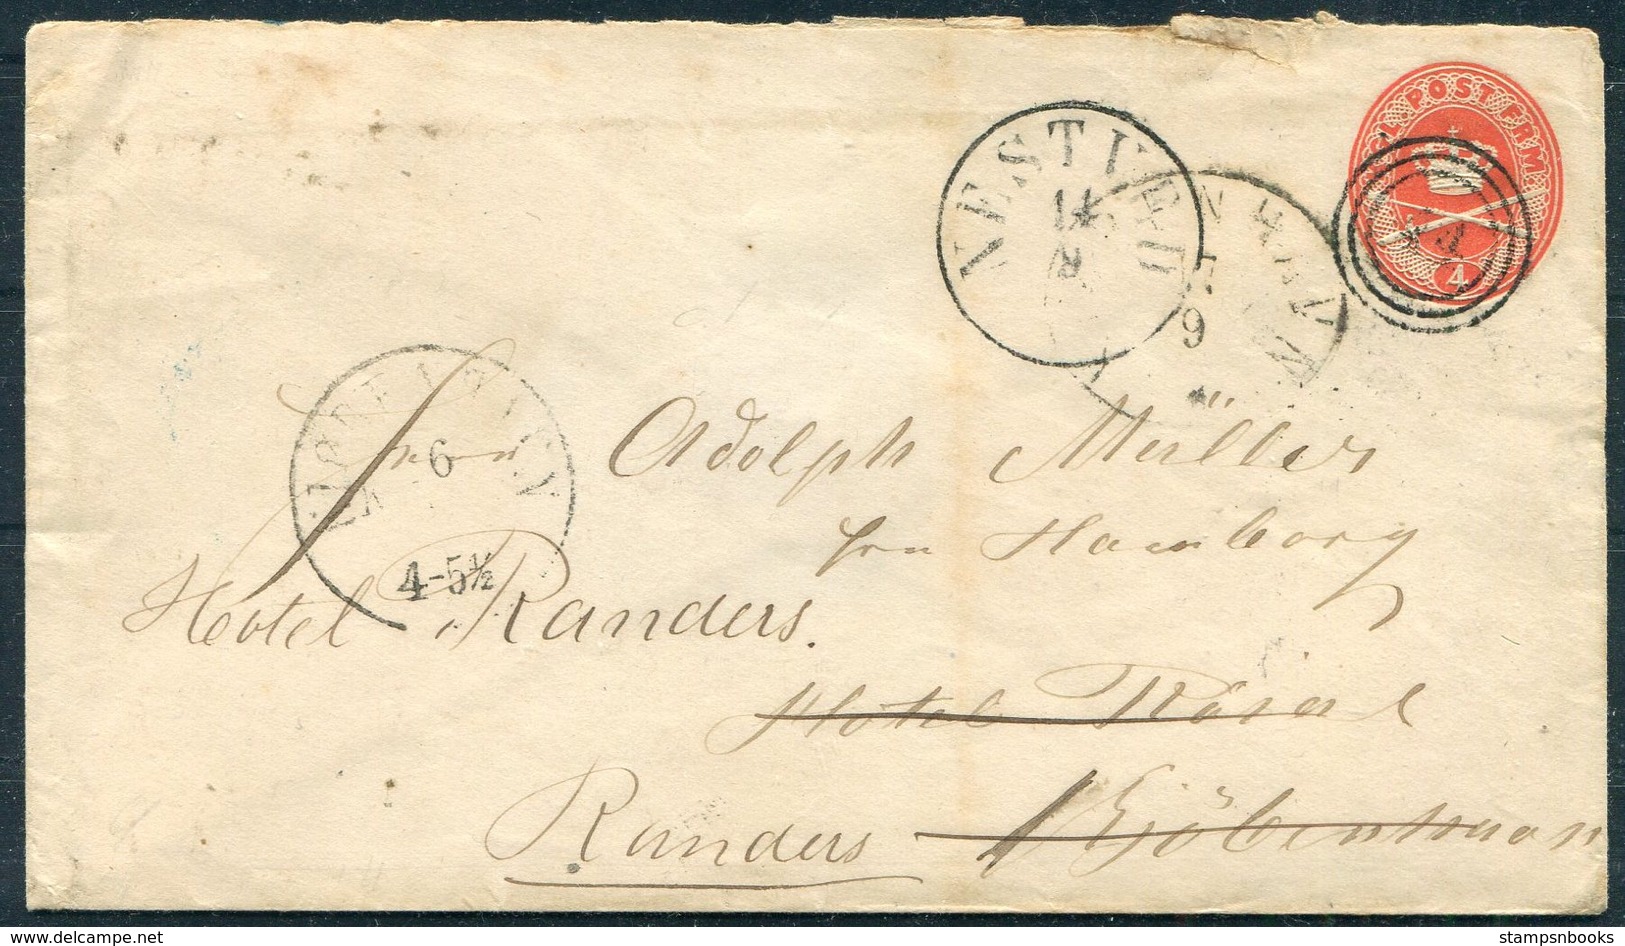 KGL POST FRM
4
NESTVED
14
8
9
6
4-5½
Herr Adolph Müller
fra Hamborg
Hotel Randers.
Hotel Royal
Randers Kjöbenhavn
stampsnbooks